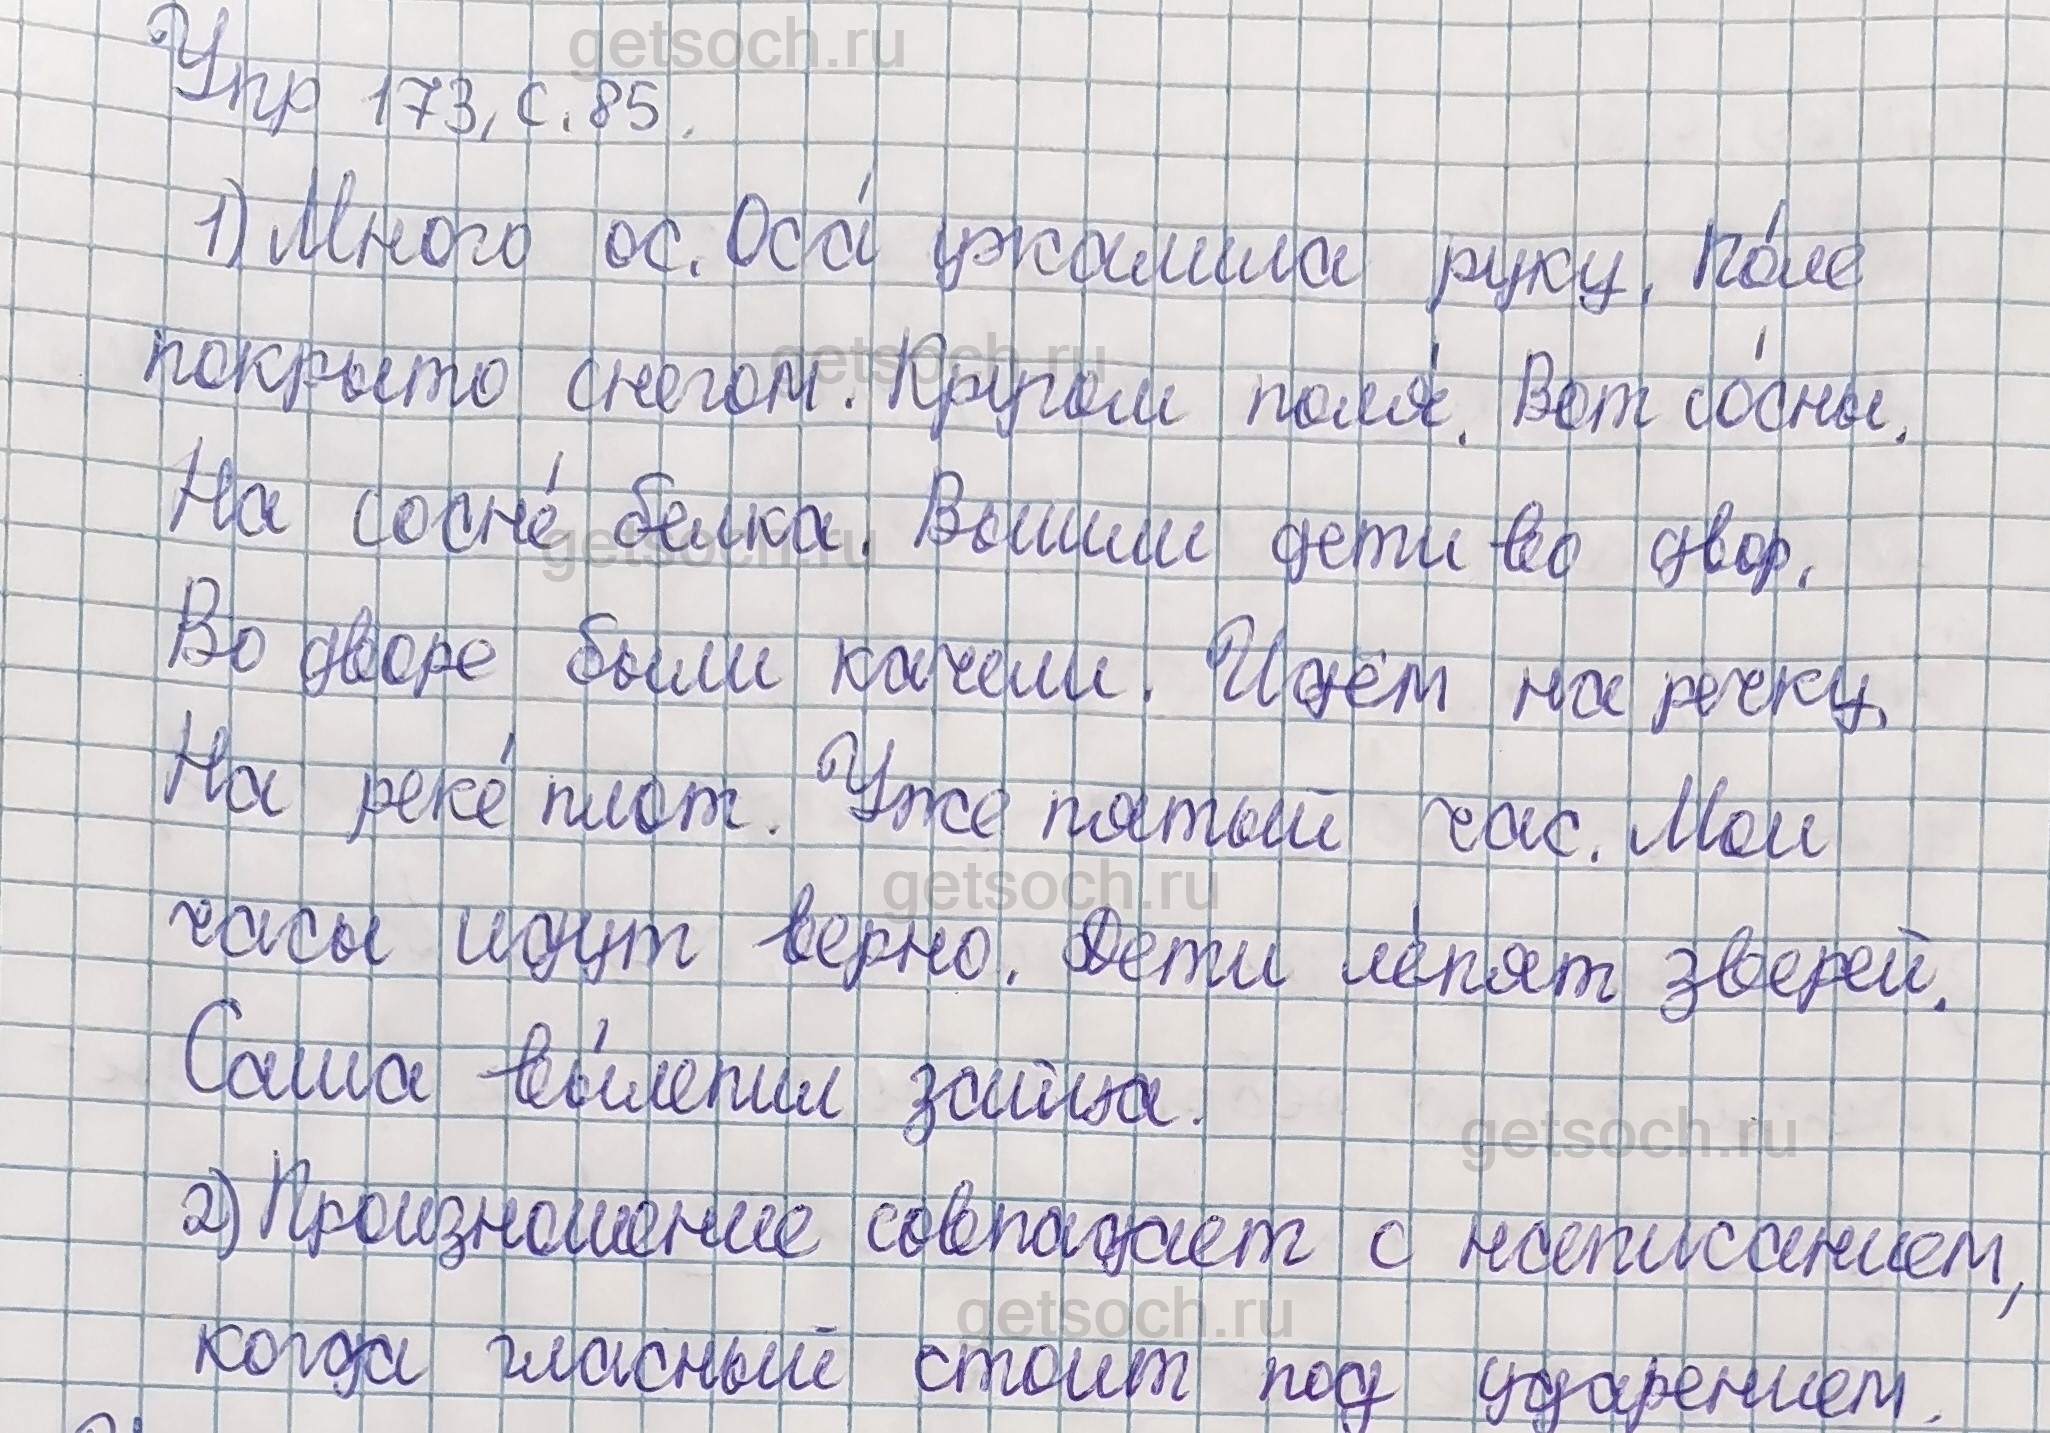 getsoch.ru
Упр 173, с. 85.
1) Много ос. Оса́ ужалила руку. По́ле
getsoch.ru
покрыто снегом. Кругом поля́. Вот со́сны.
На сосне́ белка. Вышли дети во двор.
getsoch.ru
Во дворе были качели. Идём на речку.
На реке́ плот. Уже пятый час. Мои
getsoch.ru
часы идут верно. Дети ле́пят зверей.
Саша вы́лепил зайца.
getsoch.ru
2) Произношение совпадает с написанием,
getsoch.ru
когда гласный стоит под ударением.